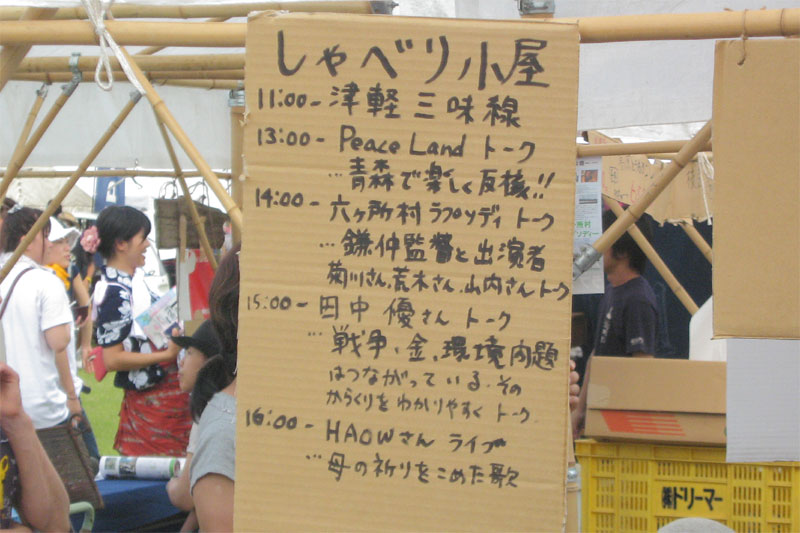 しゃべり小屋
11:00- 津軽三味線
13:00- Peace Land トーク
…青森で楽しく反核!!
14:00- 六ヶ所村ラプソディ トーク
…鎌仲監督と出演者
菊川さん、荒木さん、山内さんトーク
15:00- 田中 優さん トーク
…戦争、金、環境問題
はつながっている。その
からくりを わかりやすく トーク
16:00- HAOWさん ライブ
…母の祈りをこめた歌
㈱ドリーマー